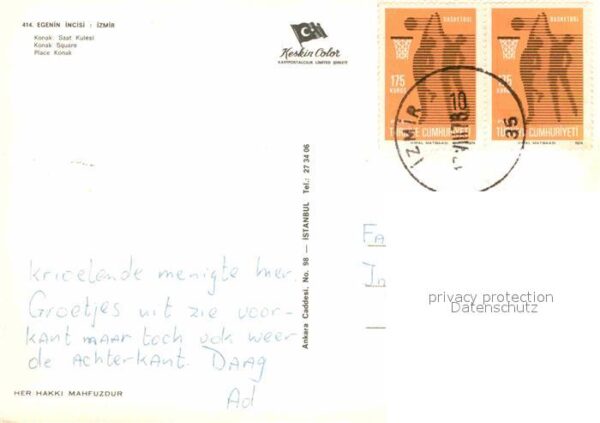 414. EGENİN İNCİSİ : İZMİR
Konak: Saat Kulesi
Konak Square
Place Konak
Keskin Color
KARTPOSTALCILIK LIMITED ŞIRKETI
BASKETBOL
175
KURUŞ
TÜRKİYE CUMHURİYETİ
BASKETBOL
175
KURUŞ
CUMHURİYETİ
İZMİR
10
35
Ankara Caddesi, No. 98 — İSTANBUL Tel.: 27 34 06
krioelende menigte hier.
Groetjes uit zie voor-
kant maar toch ook weer
de achterkant. DAAG
Ad
FA
In
privacy protection
Datenschutz
HER HAKKI MAHFUZDUR